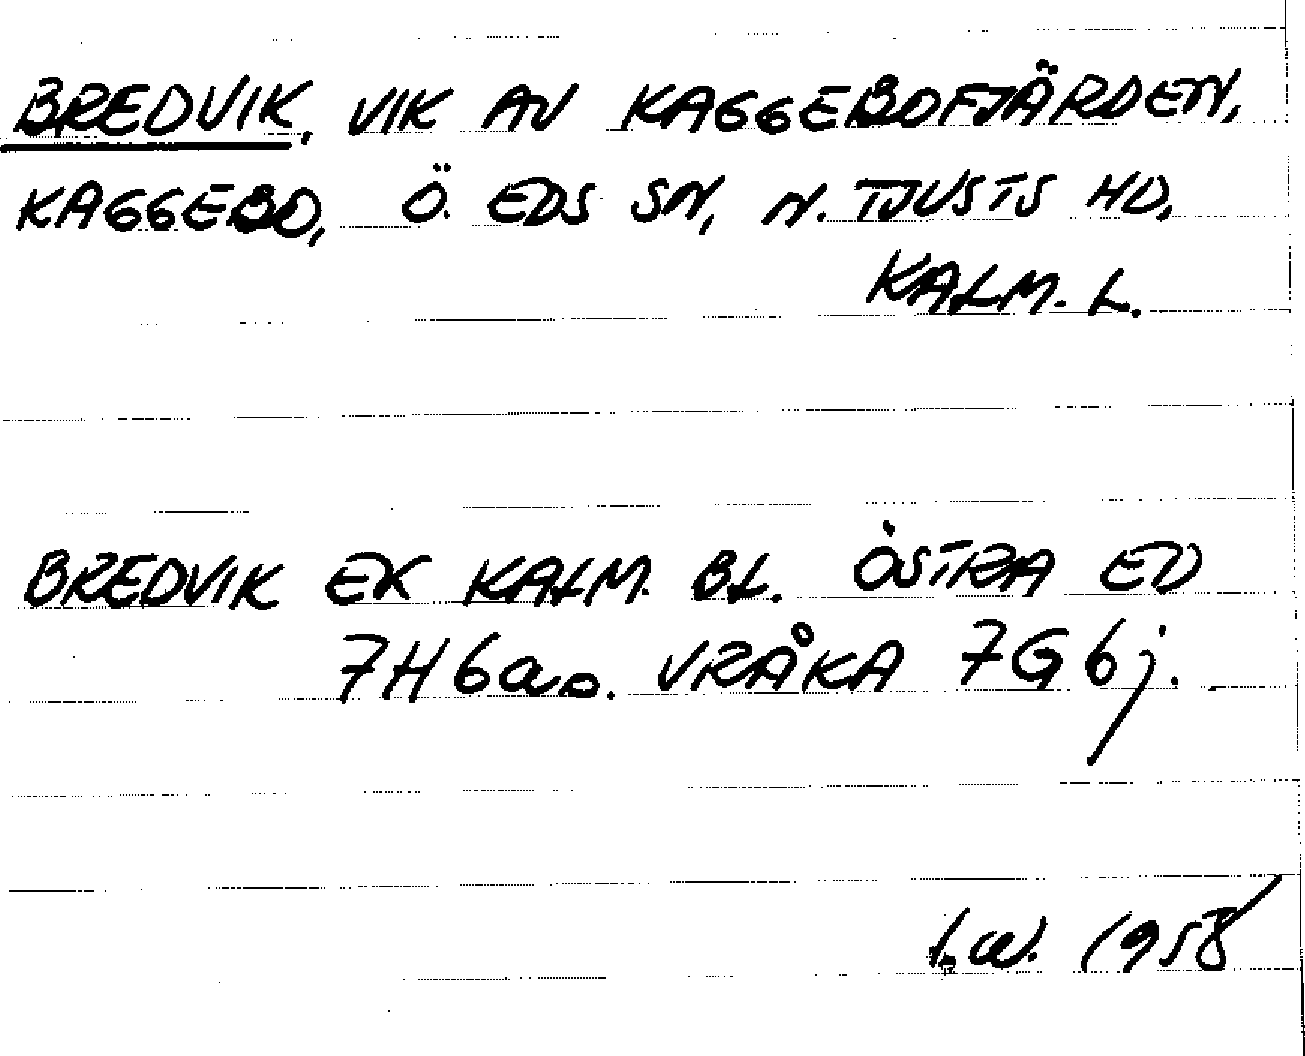 BREDVIK, VIK AV KAGGEBOFJÄRDEN,
KAGGEBO, Ö. EDS SN, N. TJUSTS HD,
KALM. L.
BREDVIK EK KALM. BL. ÖSTRA ED
7H6ao. VRÅKA 7G6j.
1958